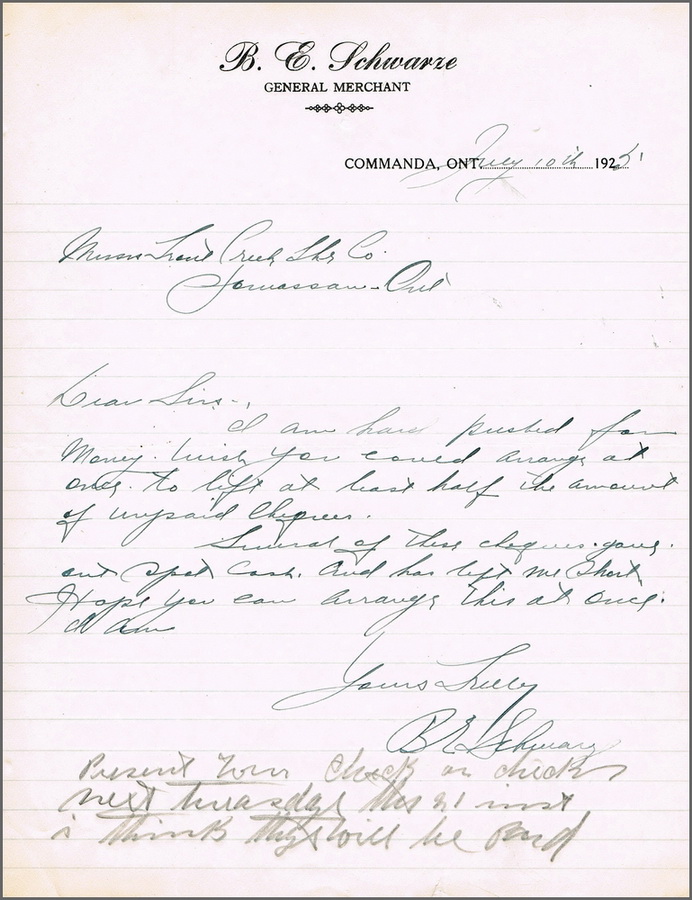 B. E. Schwarze
GENERAL MERCHANT
COMMANDA, ONT. July 10th 1925
Messrs Trout Creek Lbr Co
Ont
Dear Sirs-,
I am hard pushed for
Money. Wish you could arrange at
once. to lift at least half the amount
of unpaid Cheques.
Several of these cheques. gave.
out spot Cash. And has left me Short
Hope you can arrange this at once.
I Am
Yours Truly
B E Schwarz
Present your check or checks
next tuesday the 21 inst
i think they will be paid